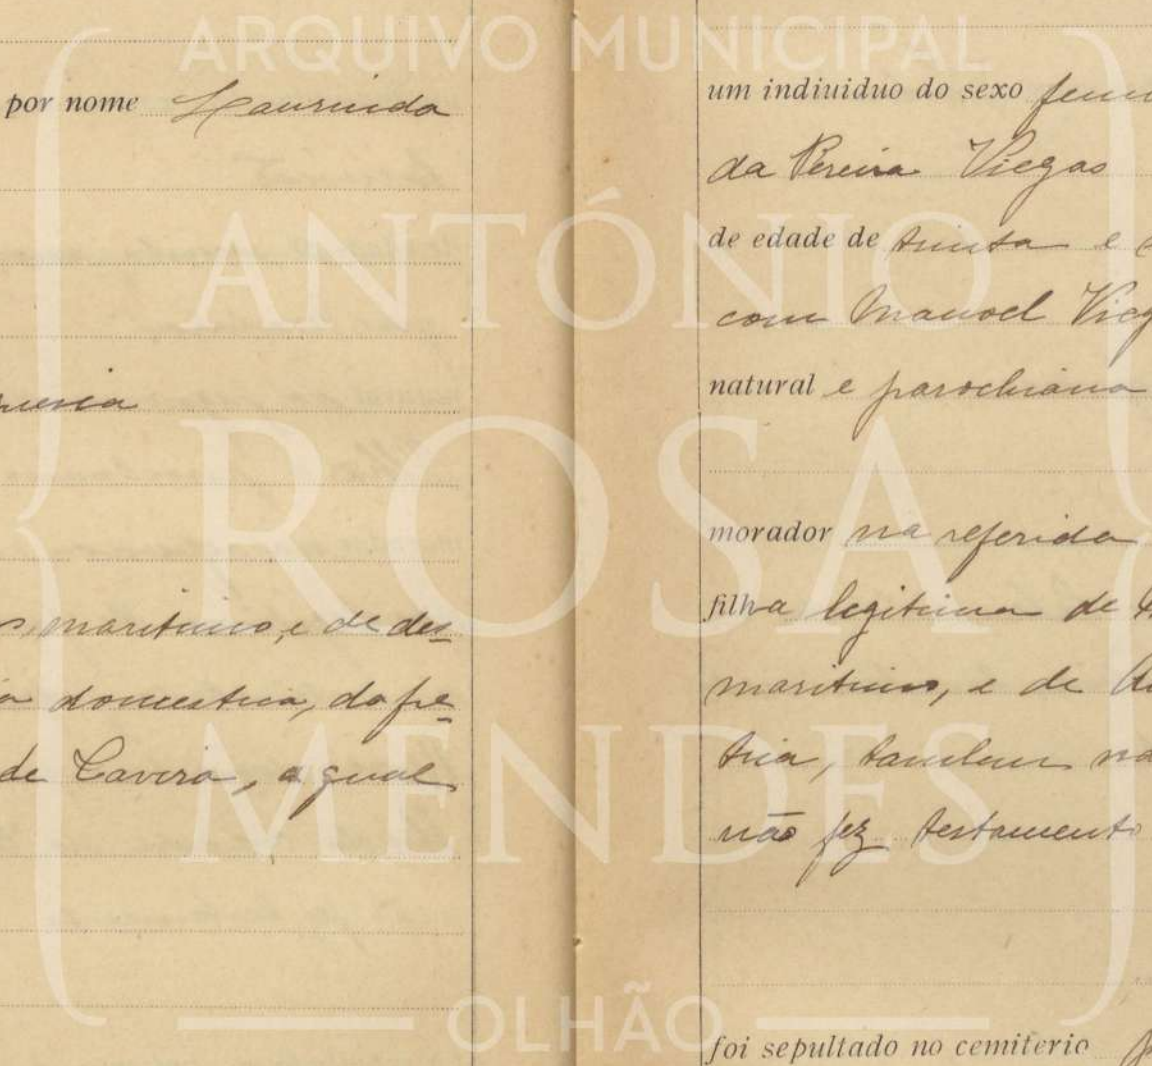 ARQUIVO MUNICIPAL
ANTÓNIO
ROSA
MENDES
OLHÃO
por nome Laurinda
s, maritimo, e de des
domestica, da fre
de Tavira, a qual
um indiuiduo do sexo
da Pereira Viegas
de edade de trinta e
com Manoel Vieg
natural e parochiana
morador na referida
filha legitima de
maritimo, e de
tria, tambem na
não fez testamento
foi sepultado no cemiterio